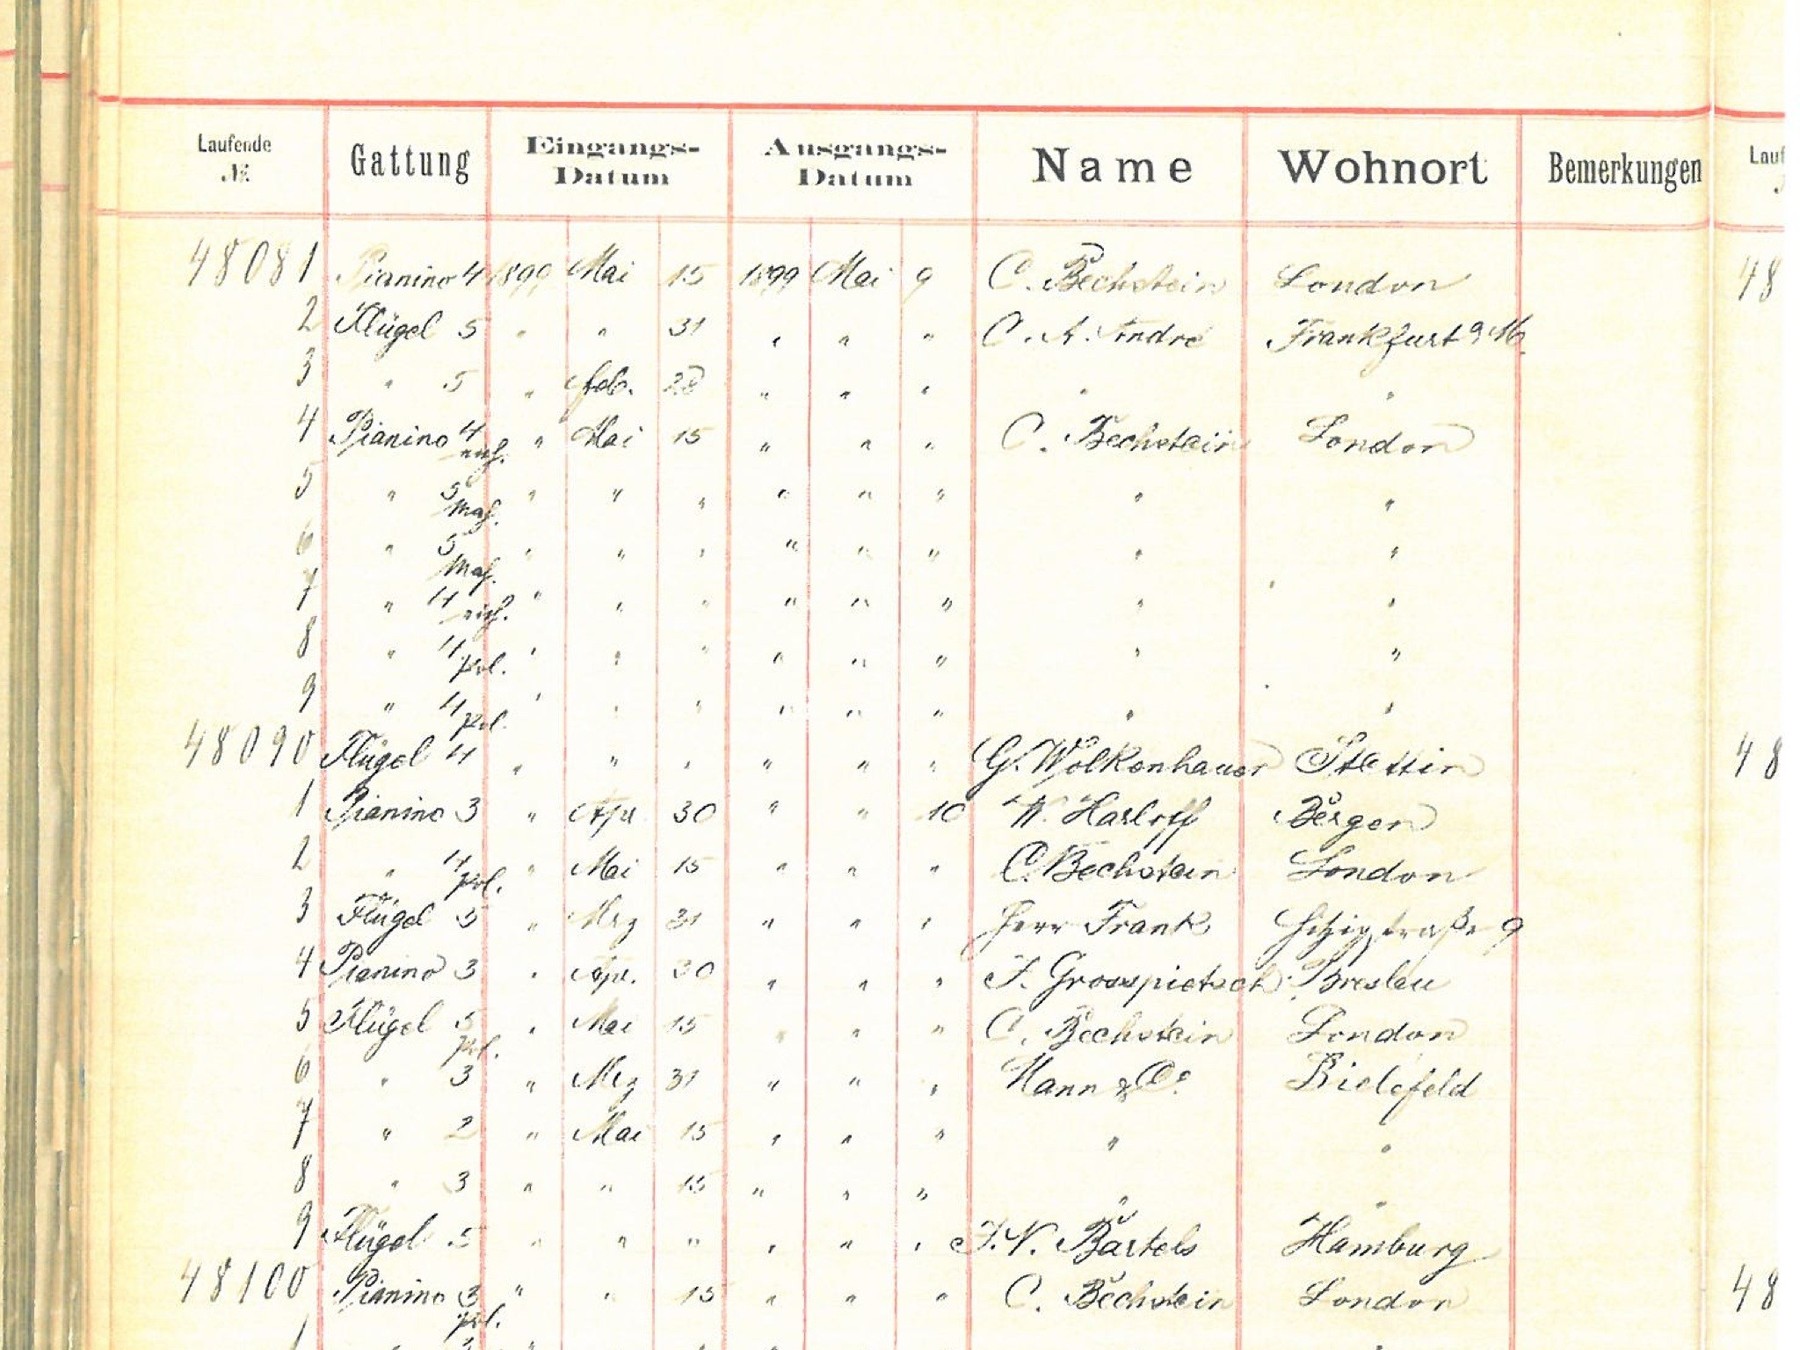 Laufende № Gattung Eingangs-Datum Ausgangs-Datum Name Wohnort Bemerkungen Lauf
48081 Pianino 4 1899 Mai 15 1899 Mai 9 C. Bechstein London 48
2 Flügel 5 " " 31 " " " C. A. André Frankfurt a/M.
3 " 5 " Feb. 28 " " " " "
4 Pianino 4 " Mai 15 " " " C. Bechstein London
5 " 5 Mah. " " " " " " " "
6 " 5 Mah. " " " " " " " "
7 " 4 " " " " " " " "
8 " 4 pol. " " " " " " " "
9 " 4 pol. " " " " " " " "
48090 Flügel 4 " " " " " " G. Wolkenhauer Stettin 48
1 Pianino 3 " Apr. 30 " " 10 W. Harloff Bergen
2 " 4 pol. " Mai 15 " " " C. Bechstein London
3 Flügel 5 " Mrz 31 " " " Herr Frank Hitzigstraße 9
4 Pianino 3 " Apr. 30 " " " F. Grosspietsch Breslau
5 Flügel 5 pol. " Mai 15 " " " C. Bechstein London
6 " 3 " Mrz 31 " " " Mann & Co. Bielefeld
7 " 2 " Mai 15 " " " " "
8 " 3 " " 15 " " " " "
9 Flügel 5 " " " " " " Bartels Hamburg
48100 Pianino 3 pol. " " 15 " " " C. Bechstein London 48
1